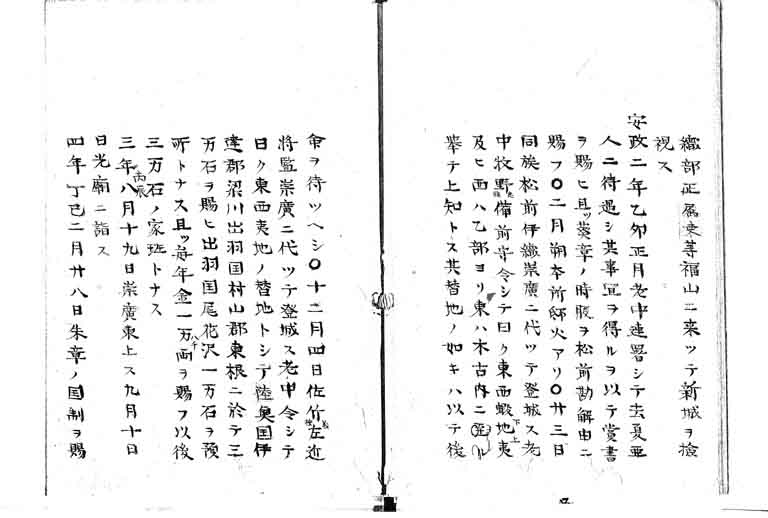 織部正属吏等福山ニ来ツテ新城ヲ検
視ス
安政二年乙卯正月老中連署シテ去夏亜
人ニ待遇シ其事宜ヲ得ルヲ以テ賞書
ヲ賜ヒ且ツ葵章ノ時服ヲ松前勘解由ニ
賜フ〇二月朔本所師火アリ〇廿三日
同族松前伊織崇廣ニ代ツテ登城ス老
中牧野備前守令シテ曰ク東西蝦地夷
下上
及ヒ西ハ乙部ヨリ東ハ木古内ニ至ル
挙テ上知トス其替地ノ如キハ以テ後
命ヲ待ツヘシ〇十二月四日佐竹左近
将監崇廣ニ代ツテ登城ス老中令シテ
曰ク東西夷地ノ替地トシテ陸奥国伊
達郡梁川出羽国村山郡東根ニ於テ三
万石ヲ賜ヒ出羽国尾花沢一万石ヲ預
所トナス且ツ毎年金一万両ヲ賜フ以後
八千
三万石ノ家班トナス
三年八月十九日崇廣東上ス九月十日
丙辰
日光廟ニ詣ス
四年丁巳二月廿八日朱章ノ国制ヲ賜